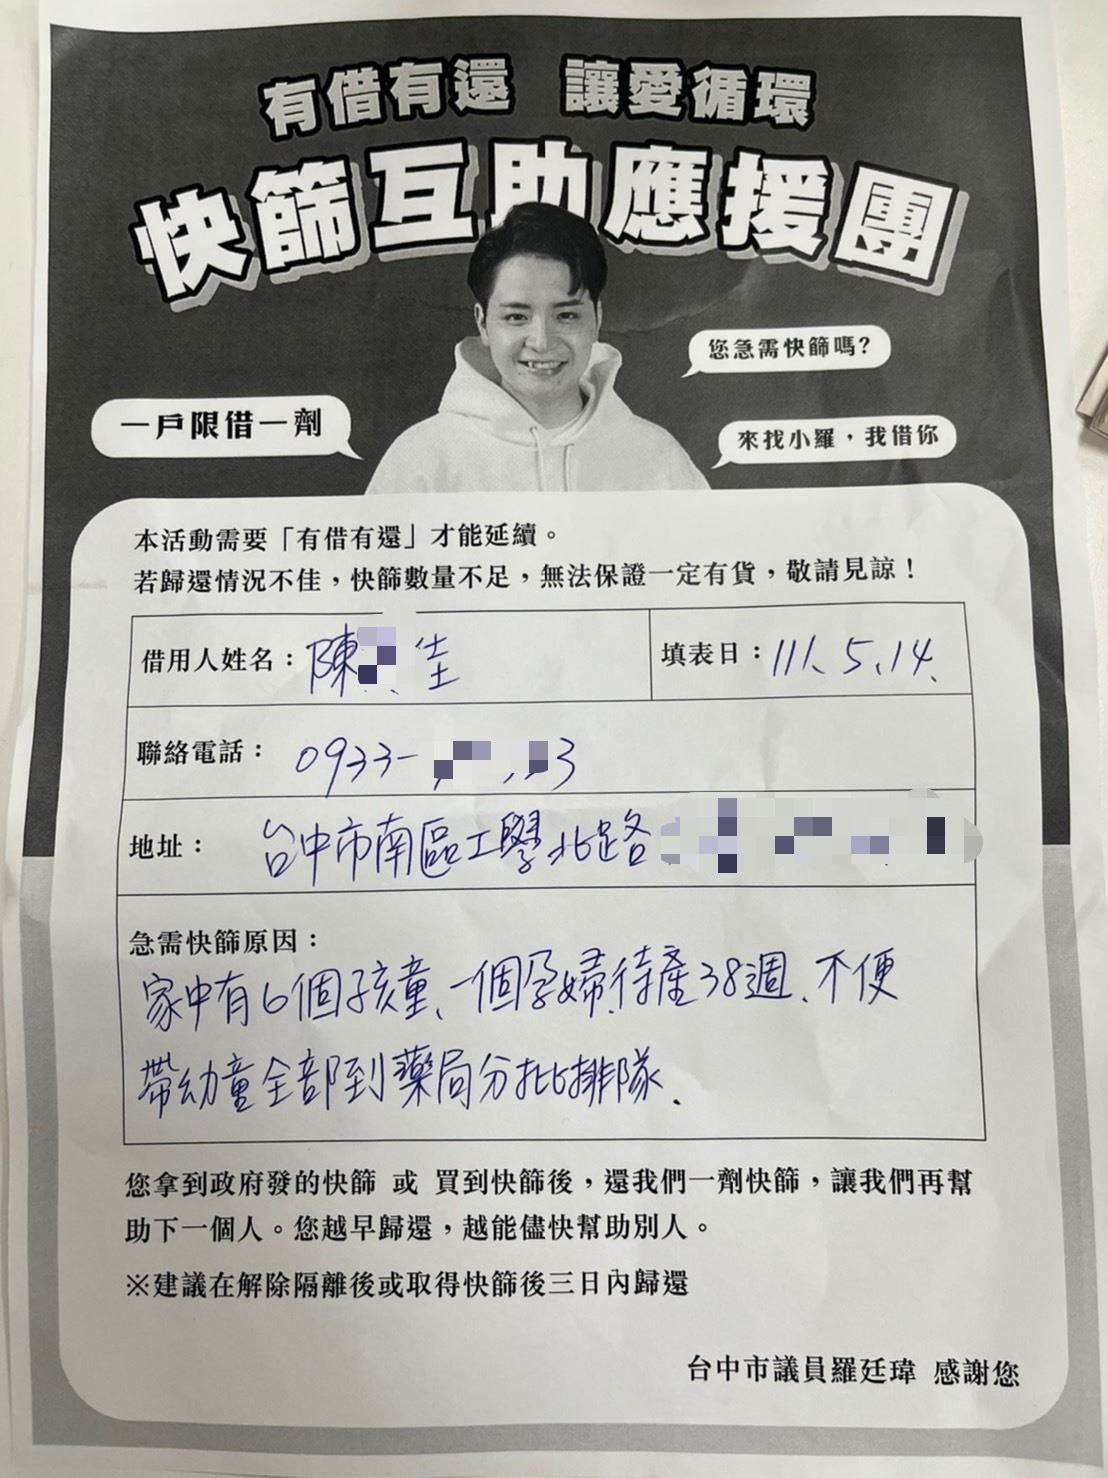 有借有還 讓愛循環
快篩互助應援團
您急需快篩嗎?
一戶限借一劑
來找小羅，我借你
本活動需要「有借有還」才能延續。
若歸還情況不佳，快篩數量不足，無法保證一定有貨，敬請見諒！
借用人姓名：陳 佳
填表日：111.5.14.
聯絡電話：0933- 3
地址：台中市南區工學北路
急需快篩原因：
家中有6個孩童、一個孕婦待產38週、不便
帶幼童全部到藥局分批排隊.
您拿到政府發的快篩 或 買到快篩後，還我們一劑快篩，讓我們再幫
助下一個人。您越早歸還，越能儘快幫助別人。
※建議在解除隔離後或取得快篩後三日內歸還
台中市議員羅廷瑋 感謝您